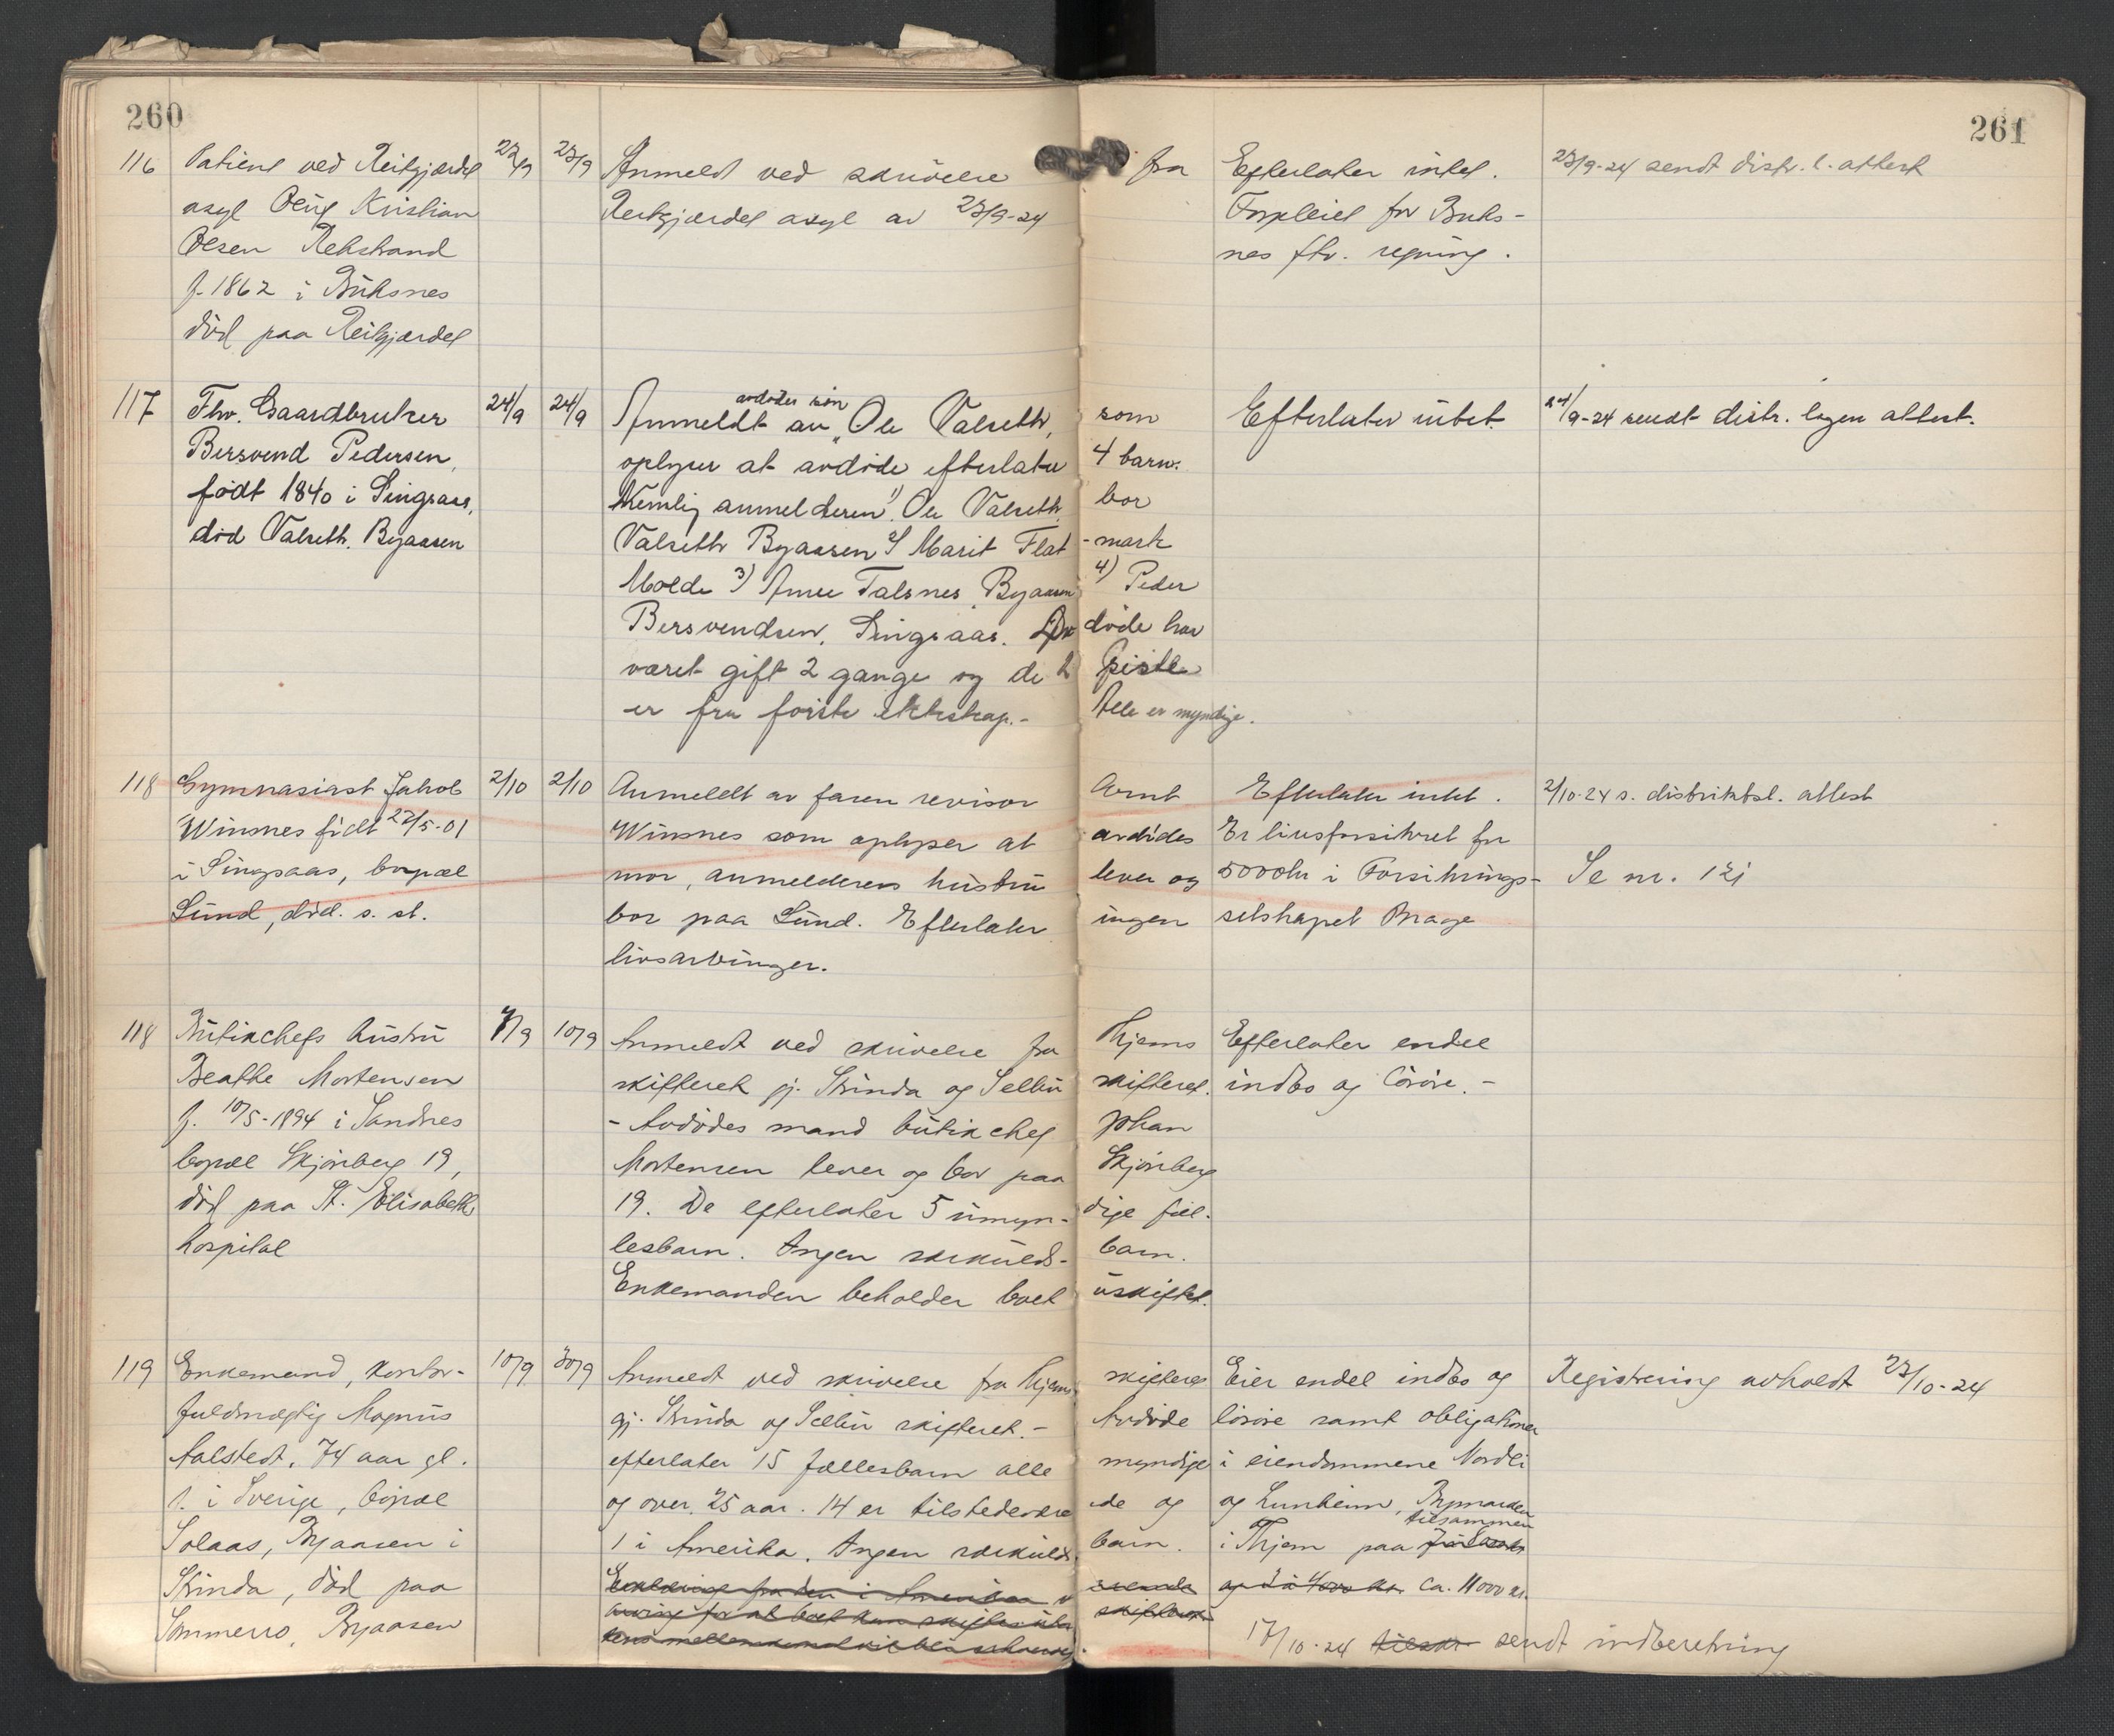 260
261
116 Patient ved Reitgjærdet 22/9 23/9 Anmeldt ved skrivelse fra Efterlater intet. 23/9-24 sendt distr. l. attest
asyl Oluf Kristian Reitgjærdet asyl av 23/9-24 Forpleiet for Buks-
Olsen Rekstrand nes ftv. regning.
f. 1862 i Buksnes
död paa Reitgjærdet
117 Fhv. Gaardbruker 24/9 24/9 Anmeldt av avdødes søn Ole Valseth, som Efterlater intet. 24/9-24 sendt distr. legen attest.
Bersvend Pedersen, oplyser at avdöde efterlater 4 barn.
födt 1840 i Singsaas, Nemlig anmelderen 1) Ole Valseth, bor
död Valseth. Byaasen Valseth Byaasen 2) Marit Flat-mark
Molde 3) Anne Talsnes, Byaasen 4) Peder
Bersvendsen, Singsaas. döde har
været gift 2 gange og de 2
er fra förste ekteskap.- Alle er myndige.
118 Gymnasiast Jakob 2/10 2/10 Anmeldt av faren revisor Arnt Efterlater intet. 2/10-24 s. distriktsl. attest
Winsnes födt 22/5-01 Winsnes som oplyser at avdödes Er livsforsikret for
i Singsaas, bopæl mor, anmelderens hustru lever og 5000 kr i Forsikrings- Se nr. 121
Lund, död. s. st. bor paa Lund. Efterlater ingen selskapet Brage
livsarvinger.
118 Butikchefs hustru 7/9 10/9 Anmeldt ved skrivelse fra Thjems Efterlater endel
Beathe Mortensen skifteret gj. Strinda og Selbu skifteret. indbo og lösöre.-
f. 10/5-1894 i Sandnes - Avdödes mand butikchef Johan
bopæl Skjönberg 19, Mortensen lever og bor paa Skjönberg
död paa St. Elisabeth 19. De efterlater 5 umyn-dige fæl-
hospital lesbarn. Ingen særkulds-barn.
Enkemanden beholder boet uskiftet.
119 Enkemand, kontor- 10/9 30/9 Anmeldt ved skrivelse fra Thjems skifteret Eier endel indbo og Registrering avholdt 23/10-24
fuldmægtig Magnus gj. Strinda og Selbu skifteret.- Avdöde lösöre samt obligationer
Aalstedt, 74 aar gl. efterlater 15 fællesbarn alle myndige i eiendommene Nordli
f. i Sverige, bopæl og over 25 aar. 14 er tilstedeværende og og Lunheim, Bymarken
Solaas, Byaasen i 1 i Amerika. Ingen særkulds-barn. i Thjem paa tilsammen
Strinda, död paa Erklæring fra den i Amerika og 4000 kr. ca. 11000 kr.
Sommerro, Byaasen
17/10-24 sendt indberetning